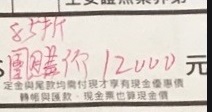 85折
團購價 12000 元
定金與尾款均需付現才享有現金優惠價
轉帳與匯款、現金票也算現金價